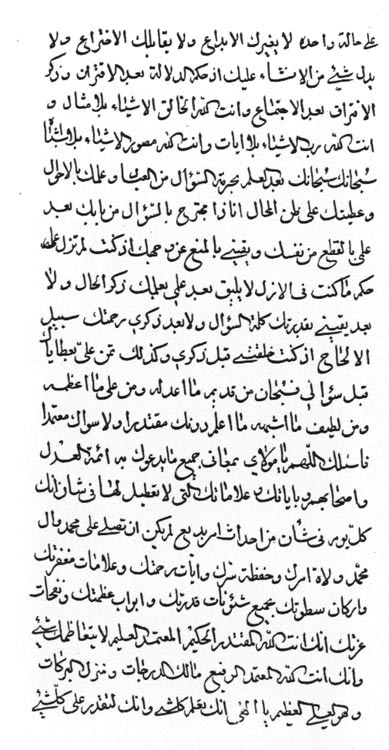 على حالة واحدة لا يغيرك الابداع ولا يقابلك الاختراع ولا
يدل شيئ من الانشاء عليك اذ حكم الدلالة بعد الاقتران وذكر
الافتراق بعد الاجتماع وانت كنت الخالق الاشياء بلا مثال و
انت كنت رب الاشياء بلا ايات وانت كنت مصور الاشياء بلا
سبحانك سبحانك بعد العلم بحرمة السؤال من العباد وعلمك بالاحوال
وعطيتك على تلك الحال انا ذا مجترح بالسؤال من بابك بعد
علي بالقطع من نفسك ويقيني بالمنع عن حبك اذ كنت لم تزل على
حكم ما كنت في الازل لا يليق بعد علي بعلمك ذكر الحال ولا
بعد يقيني بقدرتك كلمة السؤال ولا بعد ذكرى رحمتك سبيل
الالحاح اذ كنت خلقتني قبل ذكري وكذلك تمن علي بعطاياك
قبل سؤالي فسبحان من قديم ما اعدله ومن علي ما اعظمه
ومن لطيف ما اشبهه ما اعلم دونك مقتدرا ولا سواك معتمدا
فاسئلك اللهم يا مولاي بمعاني جميع ما يدعوك به ائمة العدل
واصحابهم وباياتك وعلاماتك التي لا تعطيل لها في شان انك
كل يوم في شان من احداث امر بديع لم يكن ان تصلي على محمد وال
محمد ولاة امرك وحفظة سرك وايات رحمتك وعلامات مغفرتك
واركان سطوتك بجميع شئونات قدرتك وابواب عظمتك ونفحات
عزتك انك انت كنت المقتدر الحكيم المعتمد العليم لا يتعاظمك شيئ
وانك انت كنت المعتمد الرفيع مالك الدرجات ومنزل البركات
وهو العلي العظيم يا الهي انك تعلم كلشيئ وانك لتقدر على كلشيئ